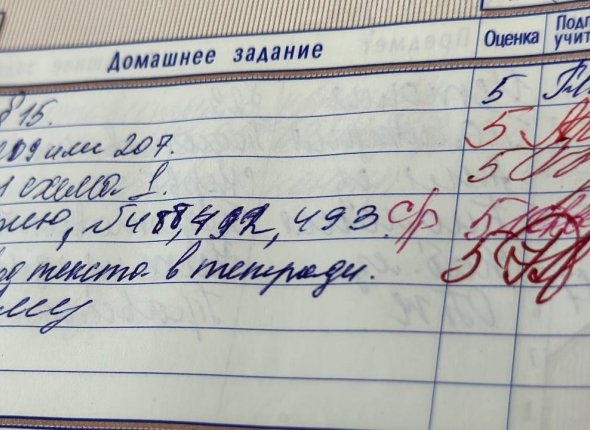 Домашнее задание Оценка Подп учит
§ 15. 5
209 или 207. 5
схема 1. 5
№ 488, 492, 493. с/р 5
од текста в тетради. 5